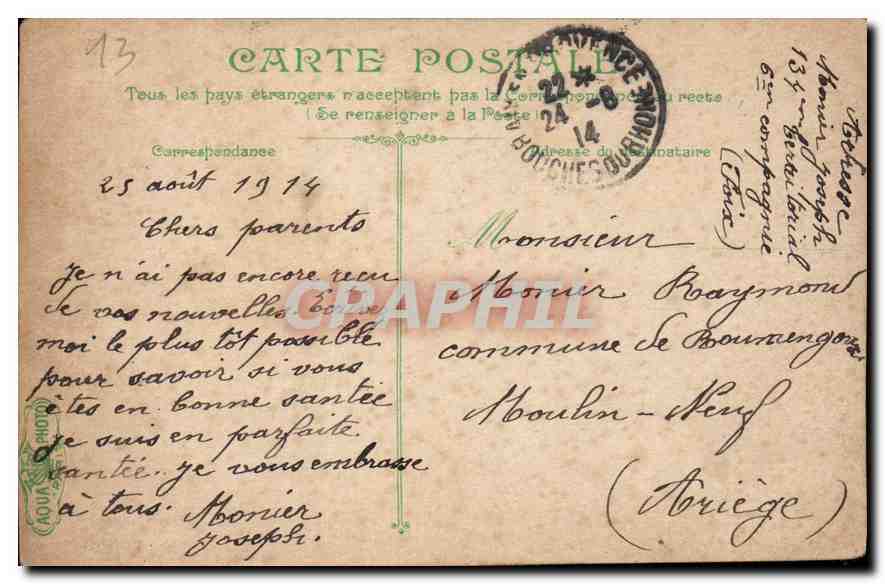 13
CARTE POSTALE
Tous les pays étrangers n'acceptent pas la Correspondance au recto
(Se renseigner à la Poste)
Correspondance
Adresse du destinataire
22 *
24 -8
14
BOUCHES DU RHONE
Adresse
Monier Joseph
134me Territorial
6em compagnie
(Foix)
25 août 1914
Chers parents
Je n'ai pas encore reçu
de vos nouvelles. Ecrivez
moi le plus tôt possible
pour savoir si vous
êtes en bonne santée
je suis en parfaite
santée. je vous embrasse
à tous. Monier
Joseph.
Monsieur
Monier Raymond
commune de
Moulin-Neuf
(Ariège)
GRAPHIL
AQUA PHOTO